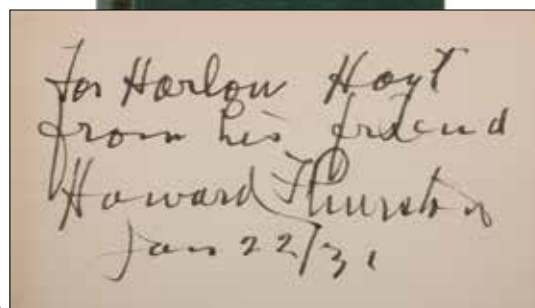 for Harlow Hoyt
from his friend
Howard Thurston
Jan 22/31